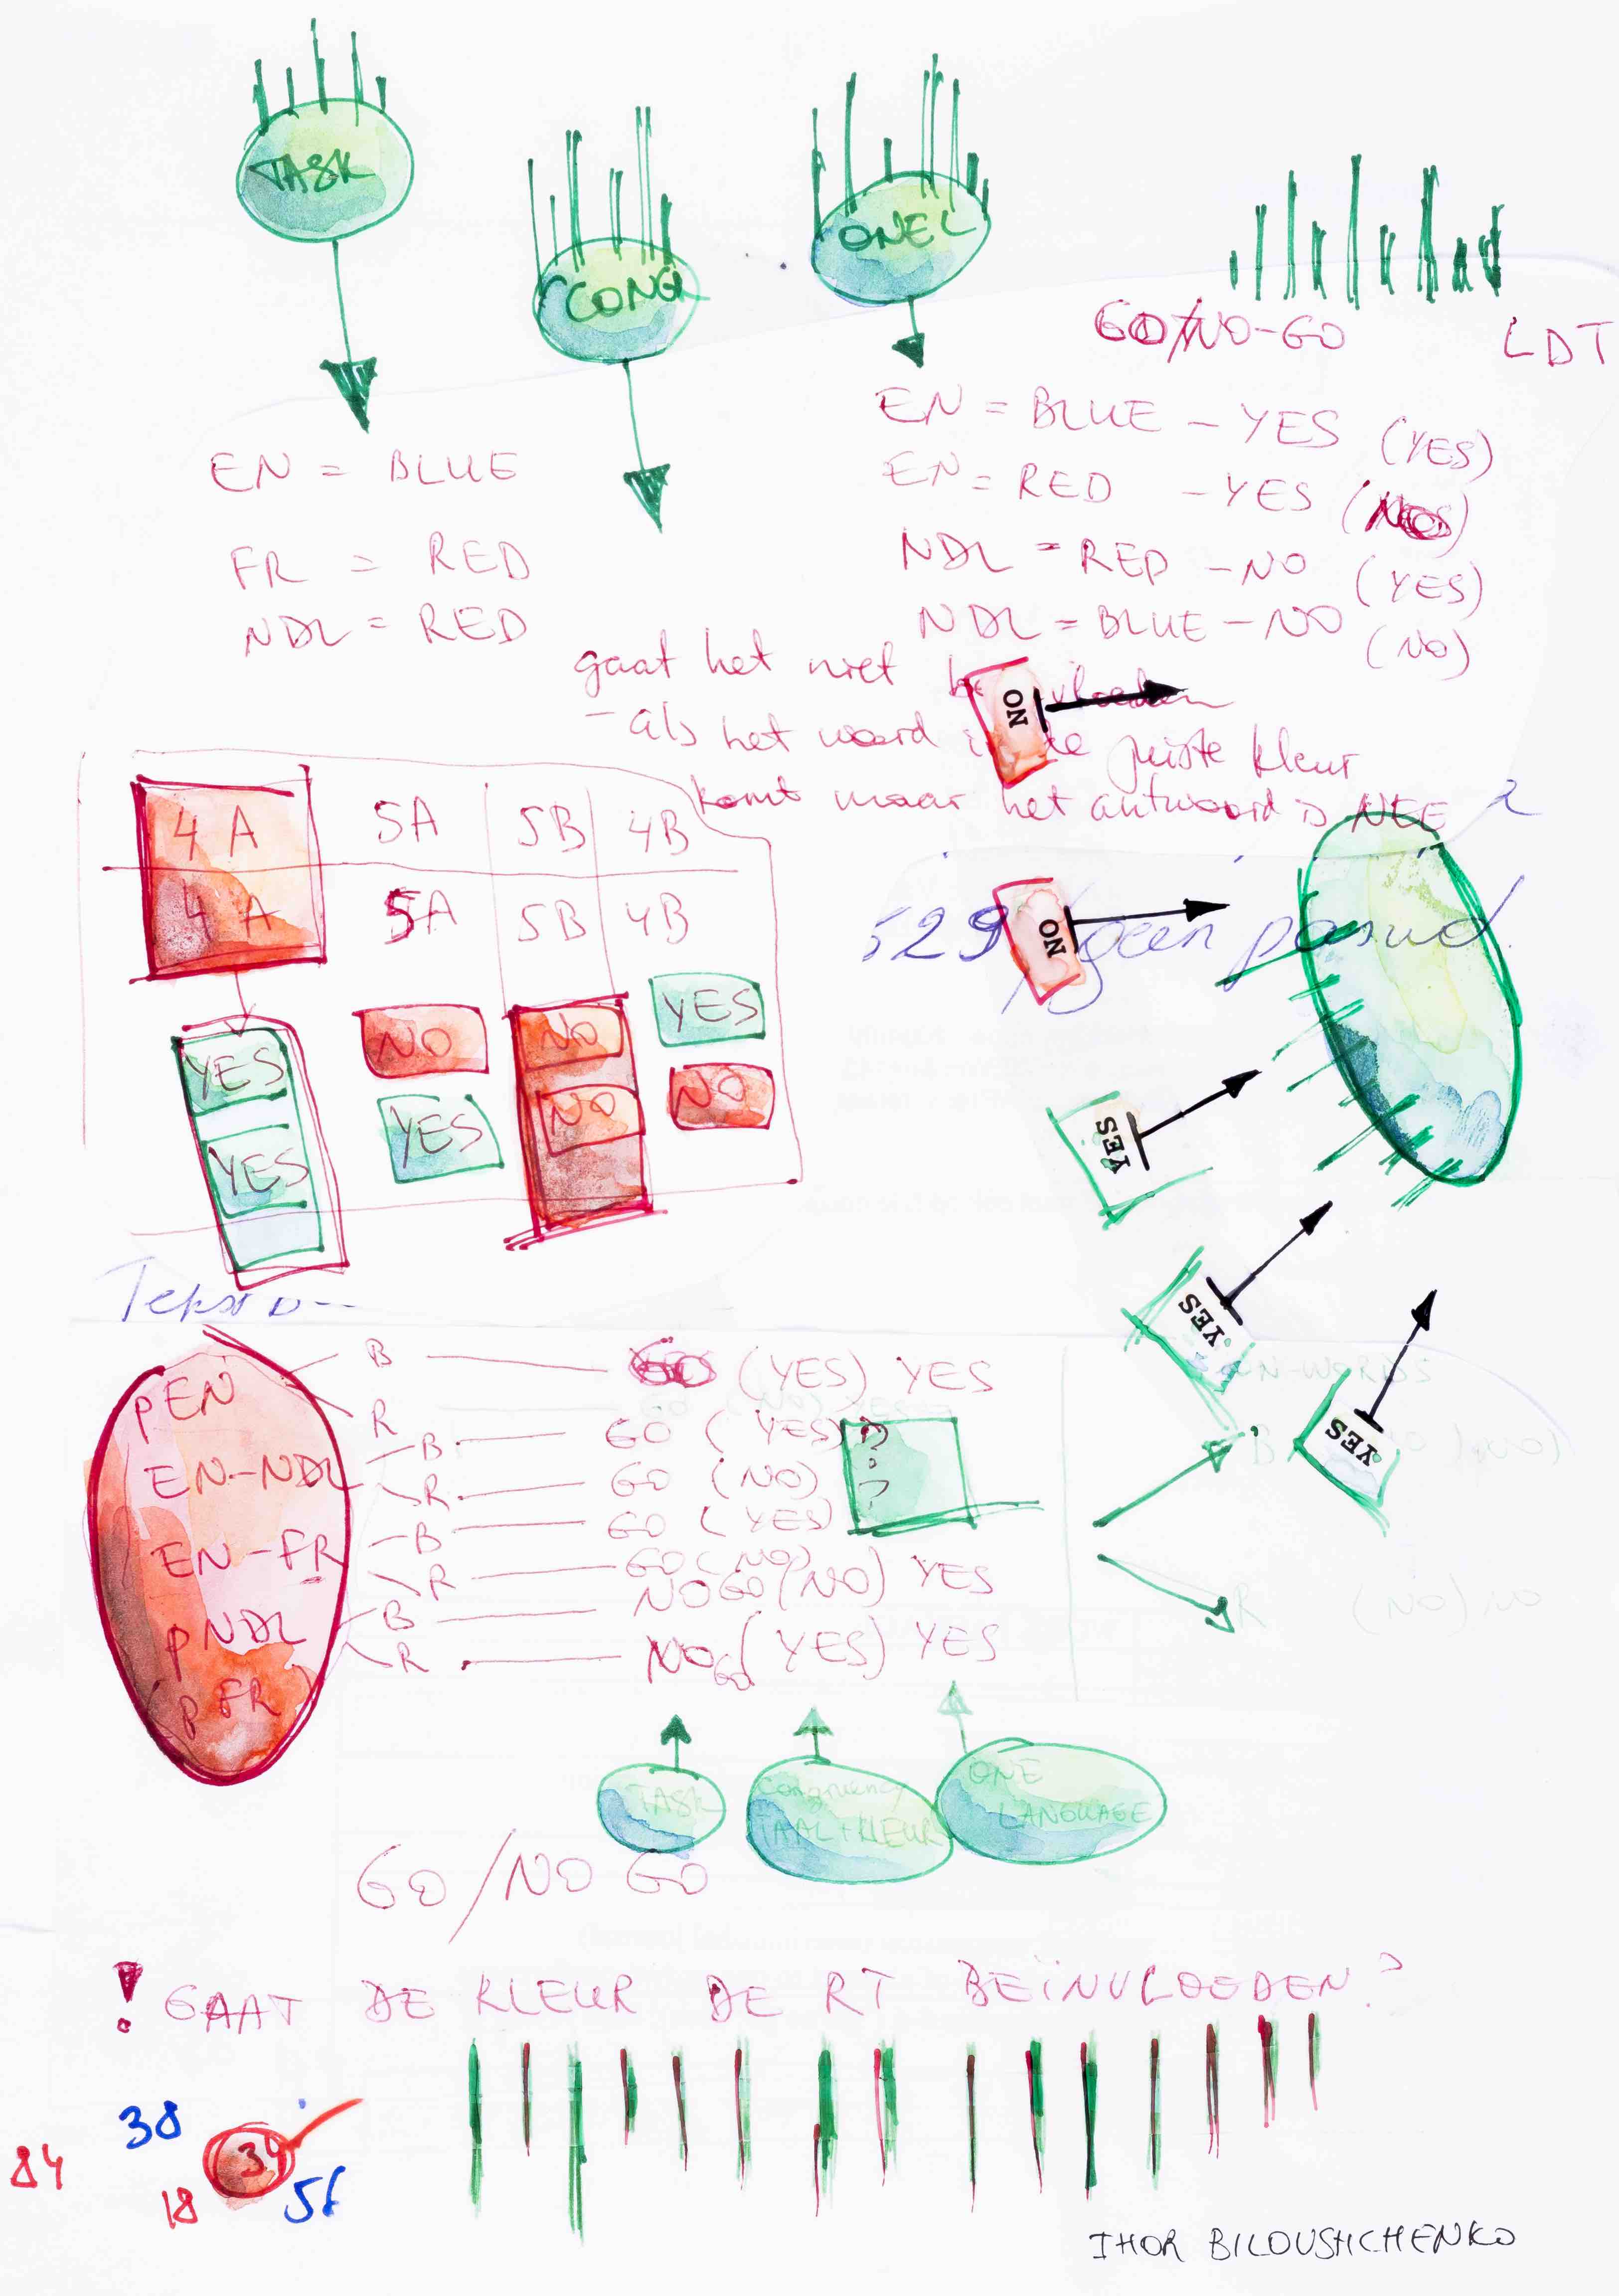 TASK
CONG
ONEL
GO/NO-GO LDT
EN = BLUE - YES (YES)
EN = RED - YES (NO)
NDL = RED - NO (YES)
NDL = BLUE - NO (NO)
EN = BLUE
FR = RED
NDL = RED
gaat het niet
- als het woord de juiste kleur
komt maar het antwoord is NEE
NO
4A 5A 5B 4B
4A 5A 5B 4B
529 geen
NO
YES NO NO YES
YES YES NO NO
YES
YES
YES
PEN
EN-NDL
EN-FR
PNDL
(PFR)
B (YES) YES
R
B GO (YES) ?
R GO (NO) ?
B GO (YES)
R GO (NO)
B NOGO (NO) YES
R NOGO (YES) YES
EN-WORDS
B
R (NO) NO
TASK
Congruency
TAAL + KLEUR
ONE
LANGUAGE
GO/NO GO
! GAAT DE KLEUR DE RT BEÏNVLOEDEN?
38
84
34
18
56
IHOR BILOUSHCHENKO